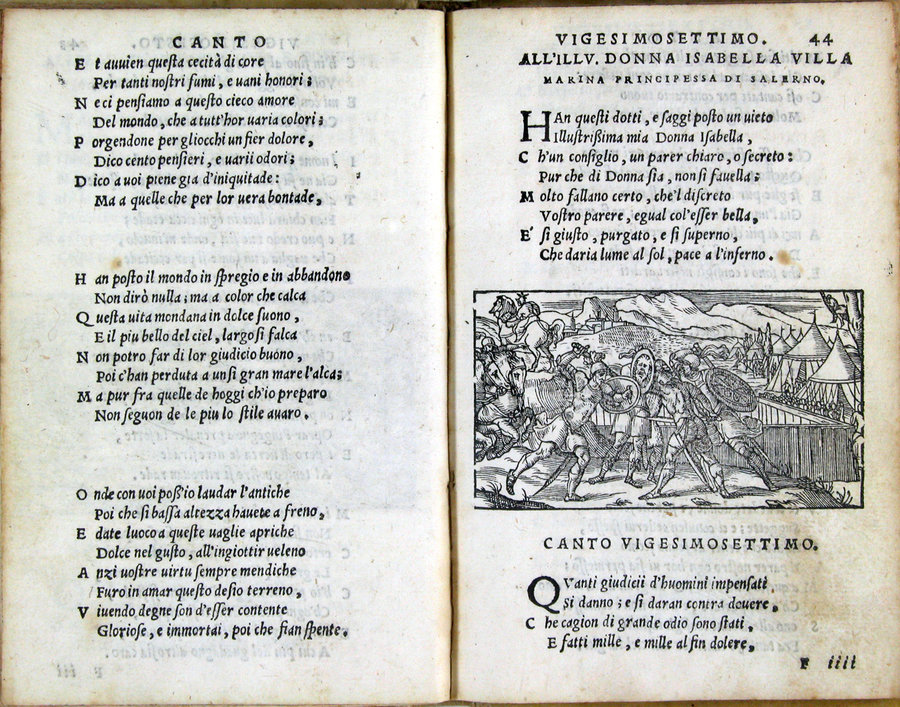 CANTO
E t auuien questa cecità di core
Per tanti nostri fumi, e uani honori;
N e ci pensiamo a questo cieco amore
Del mondo, che a tutt'hor uaria colori;
P orgendone per gliocchi un fier dolore,
Dico cento pensieri, e uarii odori;
D ico a uoi piene gia d'iniquitade:
Ma a quelle che per lor uera bontade,
H an posto il mondo in spregio e in abbandono
Non dirò nulla; ma a color che calca
Q uesta uita mondana in dolce suono,
E il piu bello del ciel, largo si falca
N on potro far di lor giudicio buono,
Poi c'han perduta a un si gran mare l'alca;
M a pur fra quelle de hoggi ch'io preparo
Non seguon de le piu lo stile auaro.
O nde con uoi poss'io laudar l'antiche
Poi che si bassa altezza hauete a freno,
E date luoco a queste uaglie apriche
Dolce nel gusto, all'ingiottir ueleno
A nzi uostre uirtu sempre mendiche
Furo in amar questo desio terreno,
V iuendo degne son d'esser contente
Gloriose, e immortai, poi che fian spente.
VIGESIMOSETTIMO. 44
ALL'ILLV. DONNA ISABELLA VILLA
MARINA PRINCIPESSA DI SALERNO.
HAn questi dotti, e saggi posto un uieto
Illustrissima mia Donna Isabella,
C h'un consiglio, un parer chiaro, o secreto:
Pur che di Donna sia, non si fauella;
M olto fallano certo, che'l discreto
Vostro parere, egual col'esser bella,
E' si giusto, purgato, e si superno,
Che daria lume al sol, pace a l'inferno.
CANTO VIGESIMOSETTIMO.
QVanti giudicii d'huomini impensati
Si danno; e si daran contra douere,
C he cagion di grande odio son stati,
E fatti mille, e mille al fin dolere,
F iiii